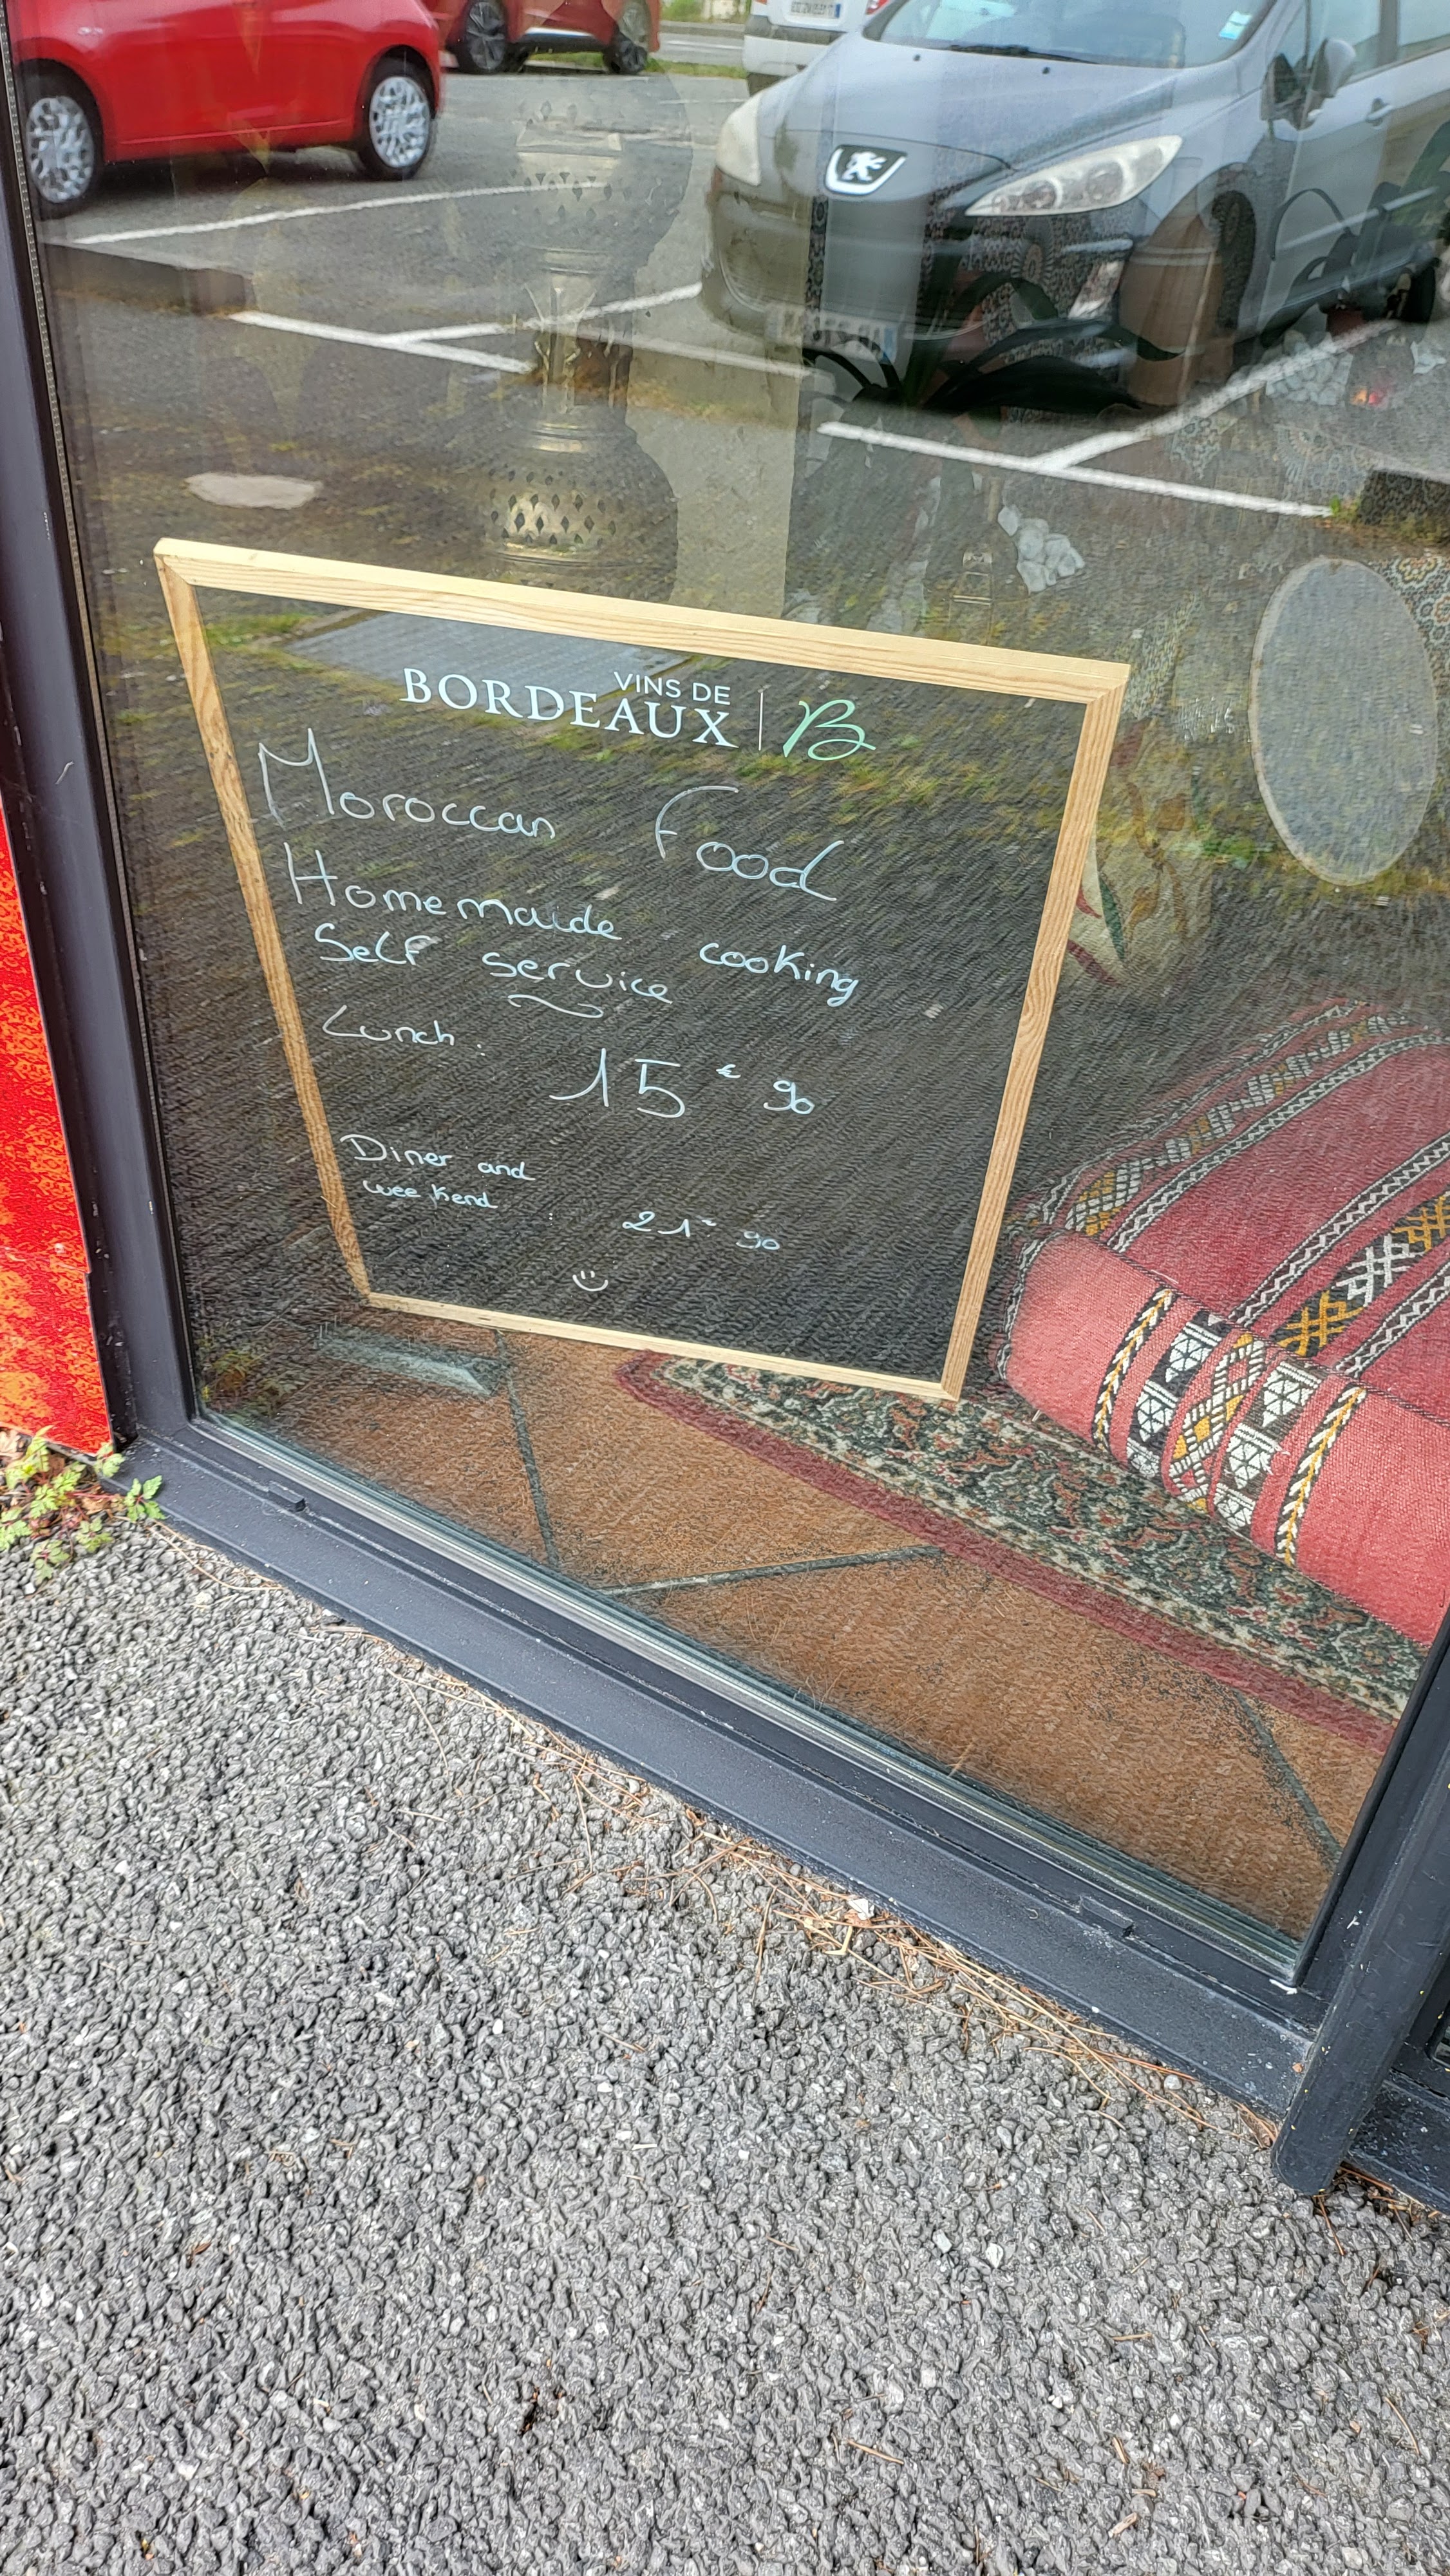 VINS DE
BORDEAUX B
Moroccan Food
Homemaide cooking
Self service
Lunch : 15 € 90
Diner and
weekend : 21 € 90